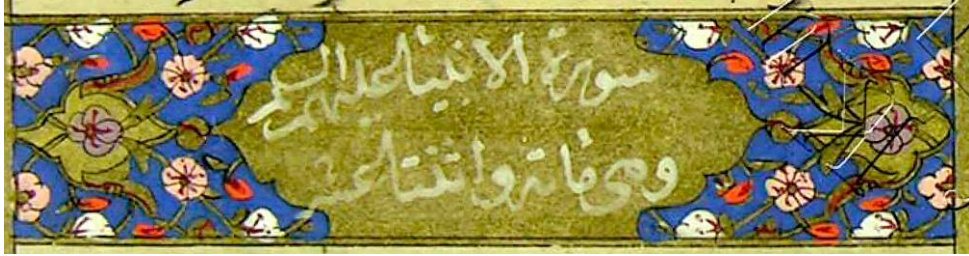 سورة الانبيا عليهم السلم
وهى مائة واثنتا عشر